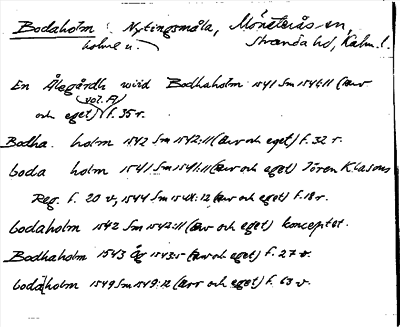 Bodaholm : Nytingsmåla, Mönsterås sn,
holme u. Stranda hd, Kalm. l.
En Ålegårdh wiid Bodhaholm 1541 Sm 1541:11 (arv
vol. A)
och eget) f. 35 r.
Bodha. holm 1542 Sm 1542:11 (arv och eget) f. 32 r.
boda holm 1541 Sm 1541:11 (arv och eget) Jören Klasons
Reg. f. 20 v, 1544 Sm 1544:12 (arv och eget) f. 18 r.
bodaholm 1542 Sm 1542:11 (arv och eget) konceptet.
Bodhaholm 1543 Ög 1543:5 (arv och eget) f. 27 v.
boda holm 1549 Sm 1549:12 (arv och eget) f. 63 v.